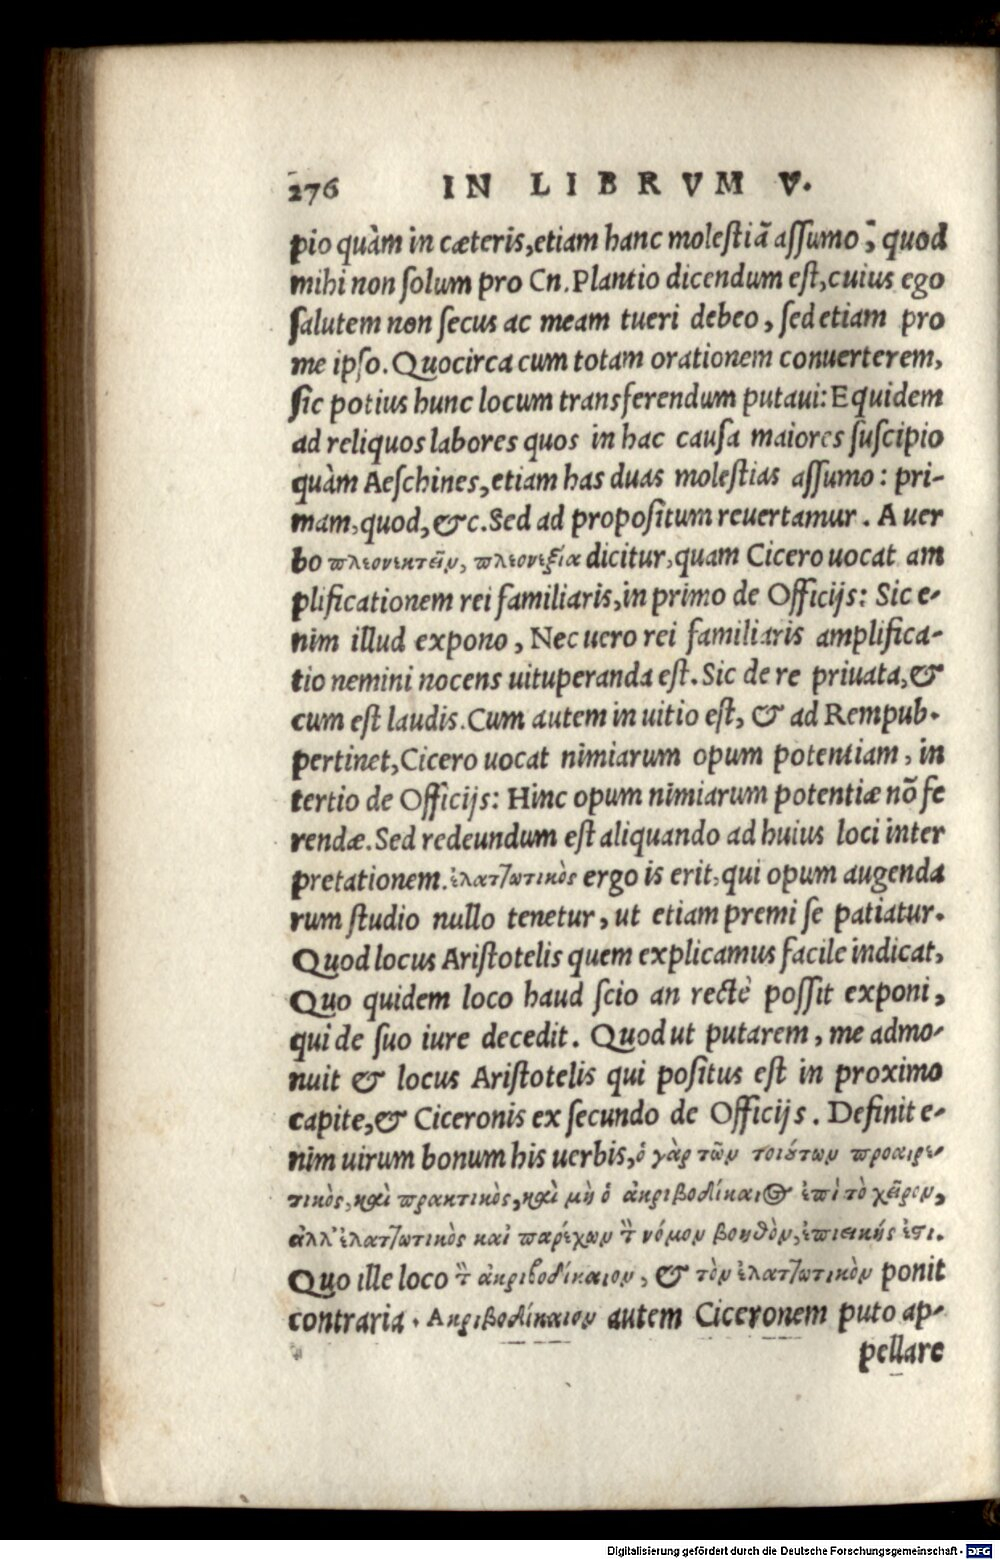 276 IN LIBRVM V.
pio quàm in cæteris, etiam hanc molestiã assumo, quod
mihi non solum pro Cn. Plantio dicendum est, cuius ego
salutem non secus ac meam tueri debeo, sed etiam pro
me ipso. Quocirca cum totam orationem conuerterem,
sic potius hunc locum transferendum putaui: Equidem
ad reliquos labores quos in hac causa maiores suscipio
quàm Aeschines, etiam has duas molestias assumo: pri-
mam, quod, &c. Sed ad propositum reuertamur. A uer
bo πλεονεκτεῖν, πλεονεξία dicitur, quam Cicero uocat am
plificationem rei familiaris, in primo de Officijs: Sic e-
nim illud expono, Nec uero rei familiaris amplifica-
tio nemini nocens uituperanda est. Sic de re priuata, &
cum est laudis. Cum autem in uitio est, & ad Rempub.
pertinet, Cicero uocat nimiarum opum potentiam, in
tertio de Officijs: Hinc opum nimiarum potentiæ nõ fe
rendæ. Sed redeundum est aliquando ad huius loci inter
pretationem. ἐλαττωτικὸς ergo is erit, qui opum augenda
rum studio nullo tenetur, ut etiam premi se patiatur.
Quod locus Aristotelis quem explicamus facile indicat,
Quo quidem loco haud scio an rectè possit exponi,
qui de suo iure decedit. Quod ut putarem, me admo-
nuit & locus Aristotelis qui positus est in proximo
capite, & Ciceronis ex secundo de Officijs. Definit e-
nim uirum bonum his uerbis, ὁ γὰρ τῶν τοιούτων προαιρε-
τικὸς, καὶ πρακτικὸς, καὶ μὴ ὁ ἀκριβοδίκαιος ἐπὶ τὸ χεῖρον,
ἀλλ' ἐλαττωτικὸς καὶ παρέχων τ̀ νόμον βοηθὸν, ἐπιεικής ἐστι.
Quo ille loco τ̀ ἀκριβοδίκαιον, & τὸν ἐλαττωτικὸν ponit
contraria. Ακριβοδίκαιον autem Ciceronem puto ap-
pellare
Digitalisierung gefördert durch die Deutsche Forschungsgemeinschaft - DFG